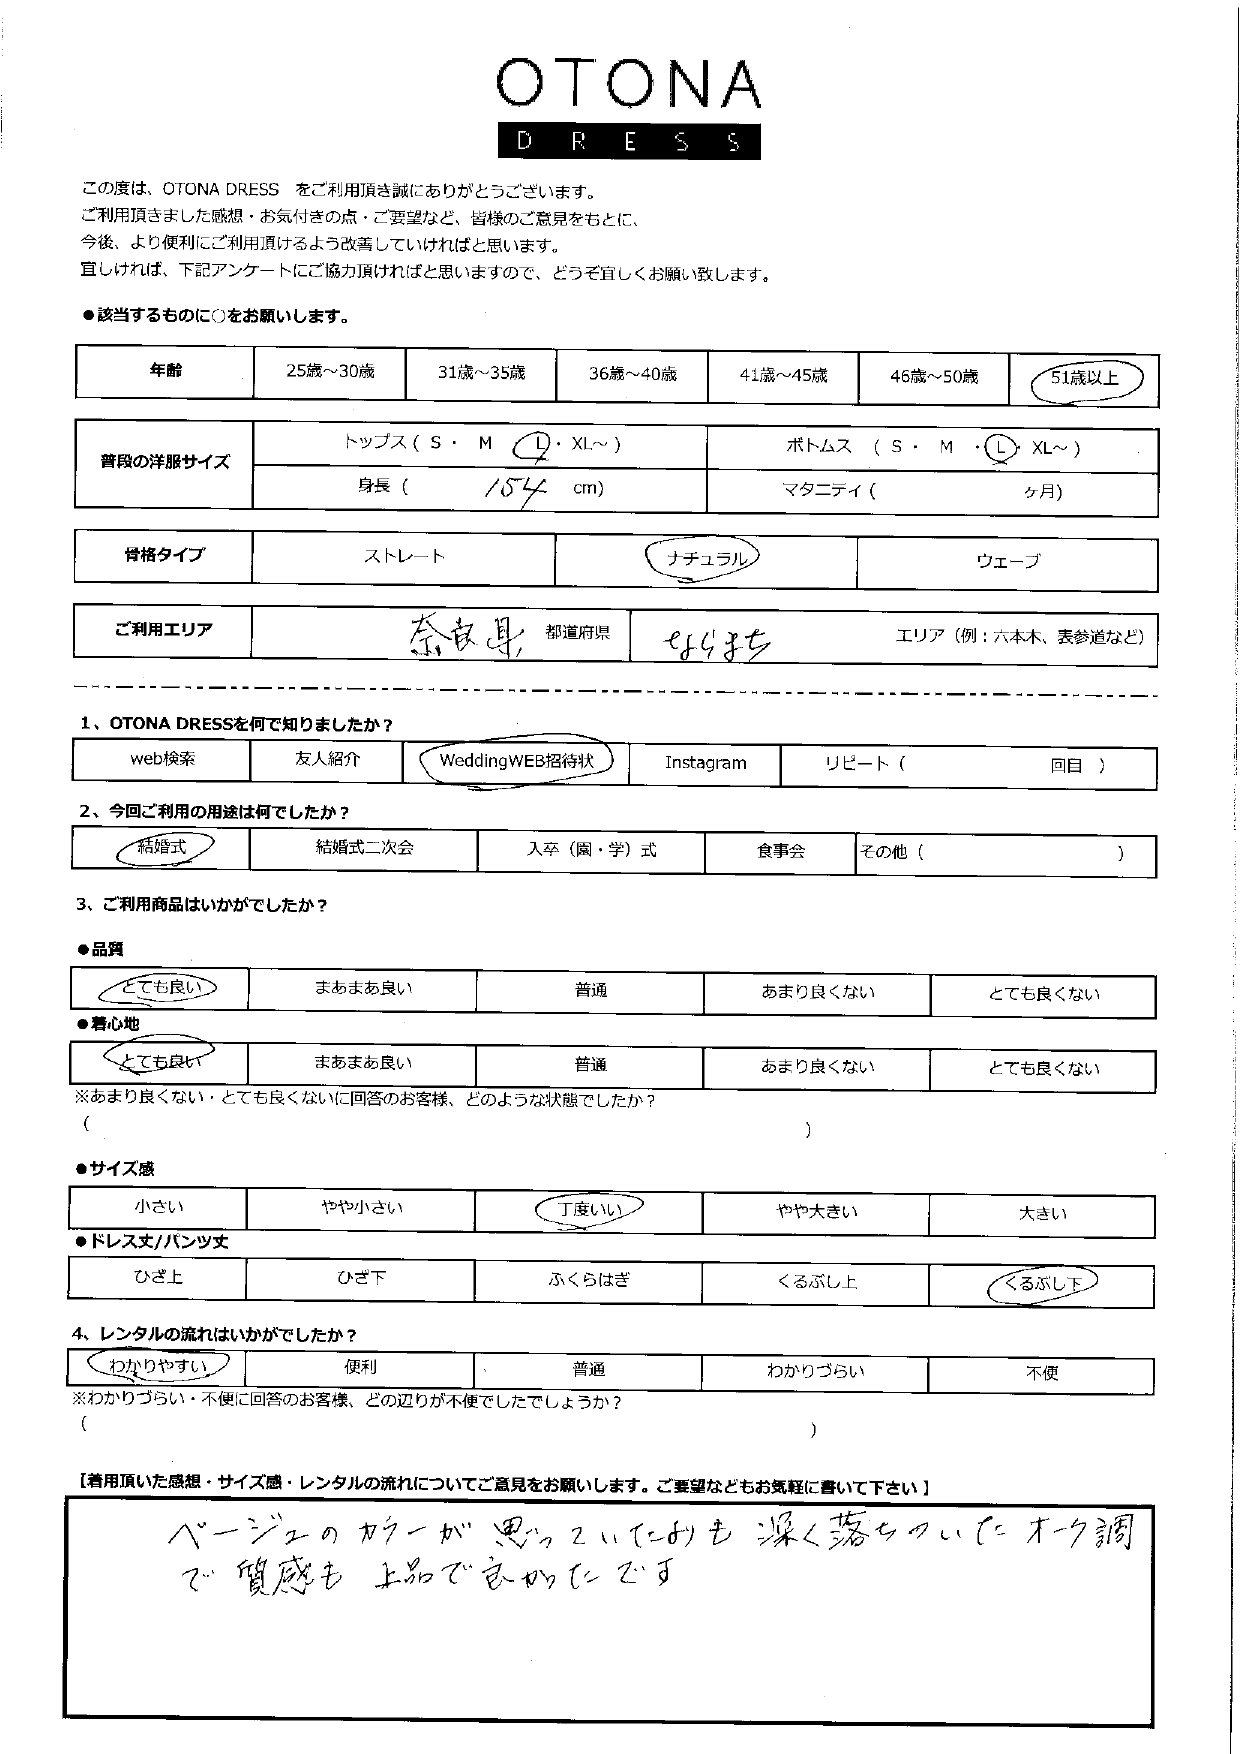 OTONA
DRESS
この度は、OTONA DRESS　をご利用頂き誠にありがとうございます。
ご利用頂きました感想・お気付きの点・ご要望など、皆様のご意見をもとに、
今後、より便利にご利用頂けるよう改善していければと思います。
宜しければ、下記アンケートにご協力頂ければと思いますので、どうぞ宜しくお願い致します。
●該当するものに○をお願いします。
年齢 25歳～30歳 31歳～35歳 36歳～40歳 41歳～45歳 46歳～50歳 51歳以上
普段の洋服サイズ
トップス ( S ・ M L ・ XL～ ) ボトムス ( S ・ M ・ L ・ XL～ )
身長 ( 154 cm) マタニティ ( ヶ月)
骨格タイプ ストレート ナチュラル ウェーブ
ご利用エリア 奈良県 都道府県 ならまち エリア（例：六本木、表参道など）
1、OTONA DRESSを何で知りましたか？
web検索 友人紹介 WeddingWEB招待状 Instagram リピート（ 回目 ）
2、今回ご利用の用途は何でしたか？
結婚式 結婚式二次会 入卒（園・学）式 食事会 その他（ ）
3、ご利用商品はいかがでしたか？
●品質
とても良い まあまあ良い 普通 あまり良くない とても良くない
●着心地
とても良い まあまあ良い 普通 あまり良くない とても良くない
※あまり良くない・とても良くないに回答のお客様、どのような状態でしたか？
( )
●サイズ感
小さい やや小さい 丁度いい やや大きい 大きい
●ドレス丈/パンツ丈
ひざ上 ひざ下 ふくらはぎ くるぶし上 くるぶし下
4、レンタルの流れはいかがでしたか？
わかりやすい 便利 普通 わかりづらい 不便
※わかりづらい・不便に回答のお客様、どの辺りが不便でしたでしょうか？
( )
【着用頂いた感想・サイズ感・レンタルの流れについてご意見をお願いします。ご要望などもお気軽に書いて下さい】
ベージュのカラーが思っていたよりも深く落ちついたオーク調
で質感も上品で良かったです